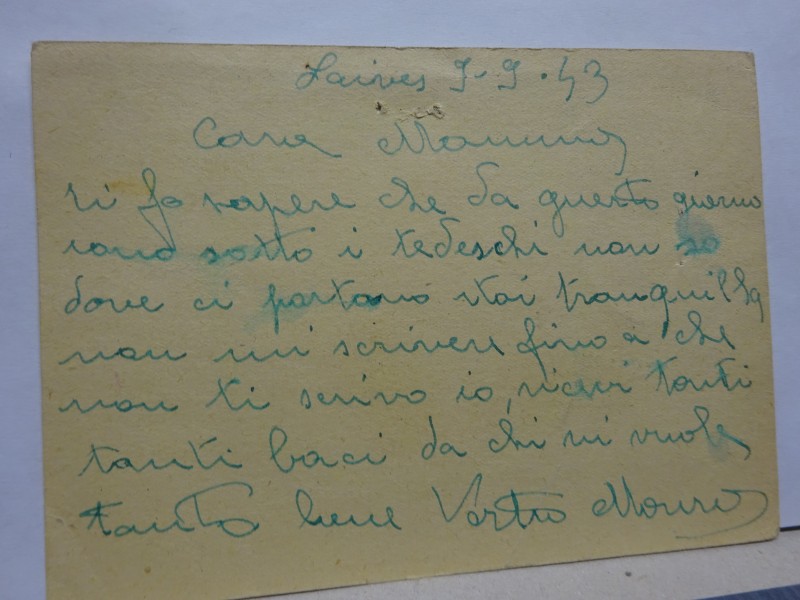 Laives 9-9-43
Cara Mamma
ti fo sapere che da questo giorno
sono sotto i tedeschi non so
dove ci portano stai tranquilla
non mi scrivere fino a che
non ti scrivo io, ricevi tanti
tanti baci da chi vi vuole
tanto bene Vostro Mauro